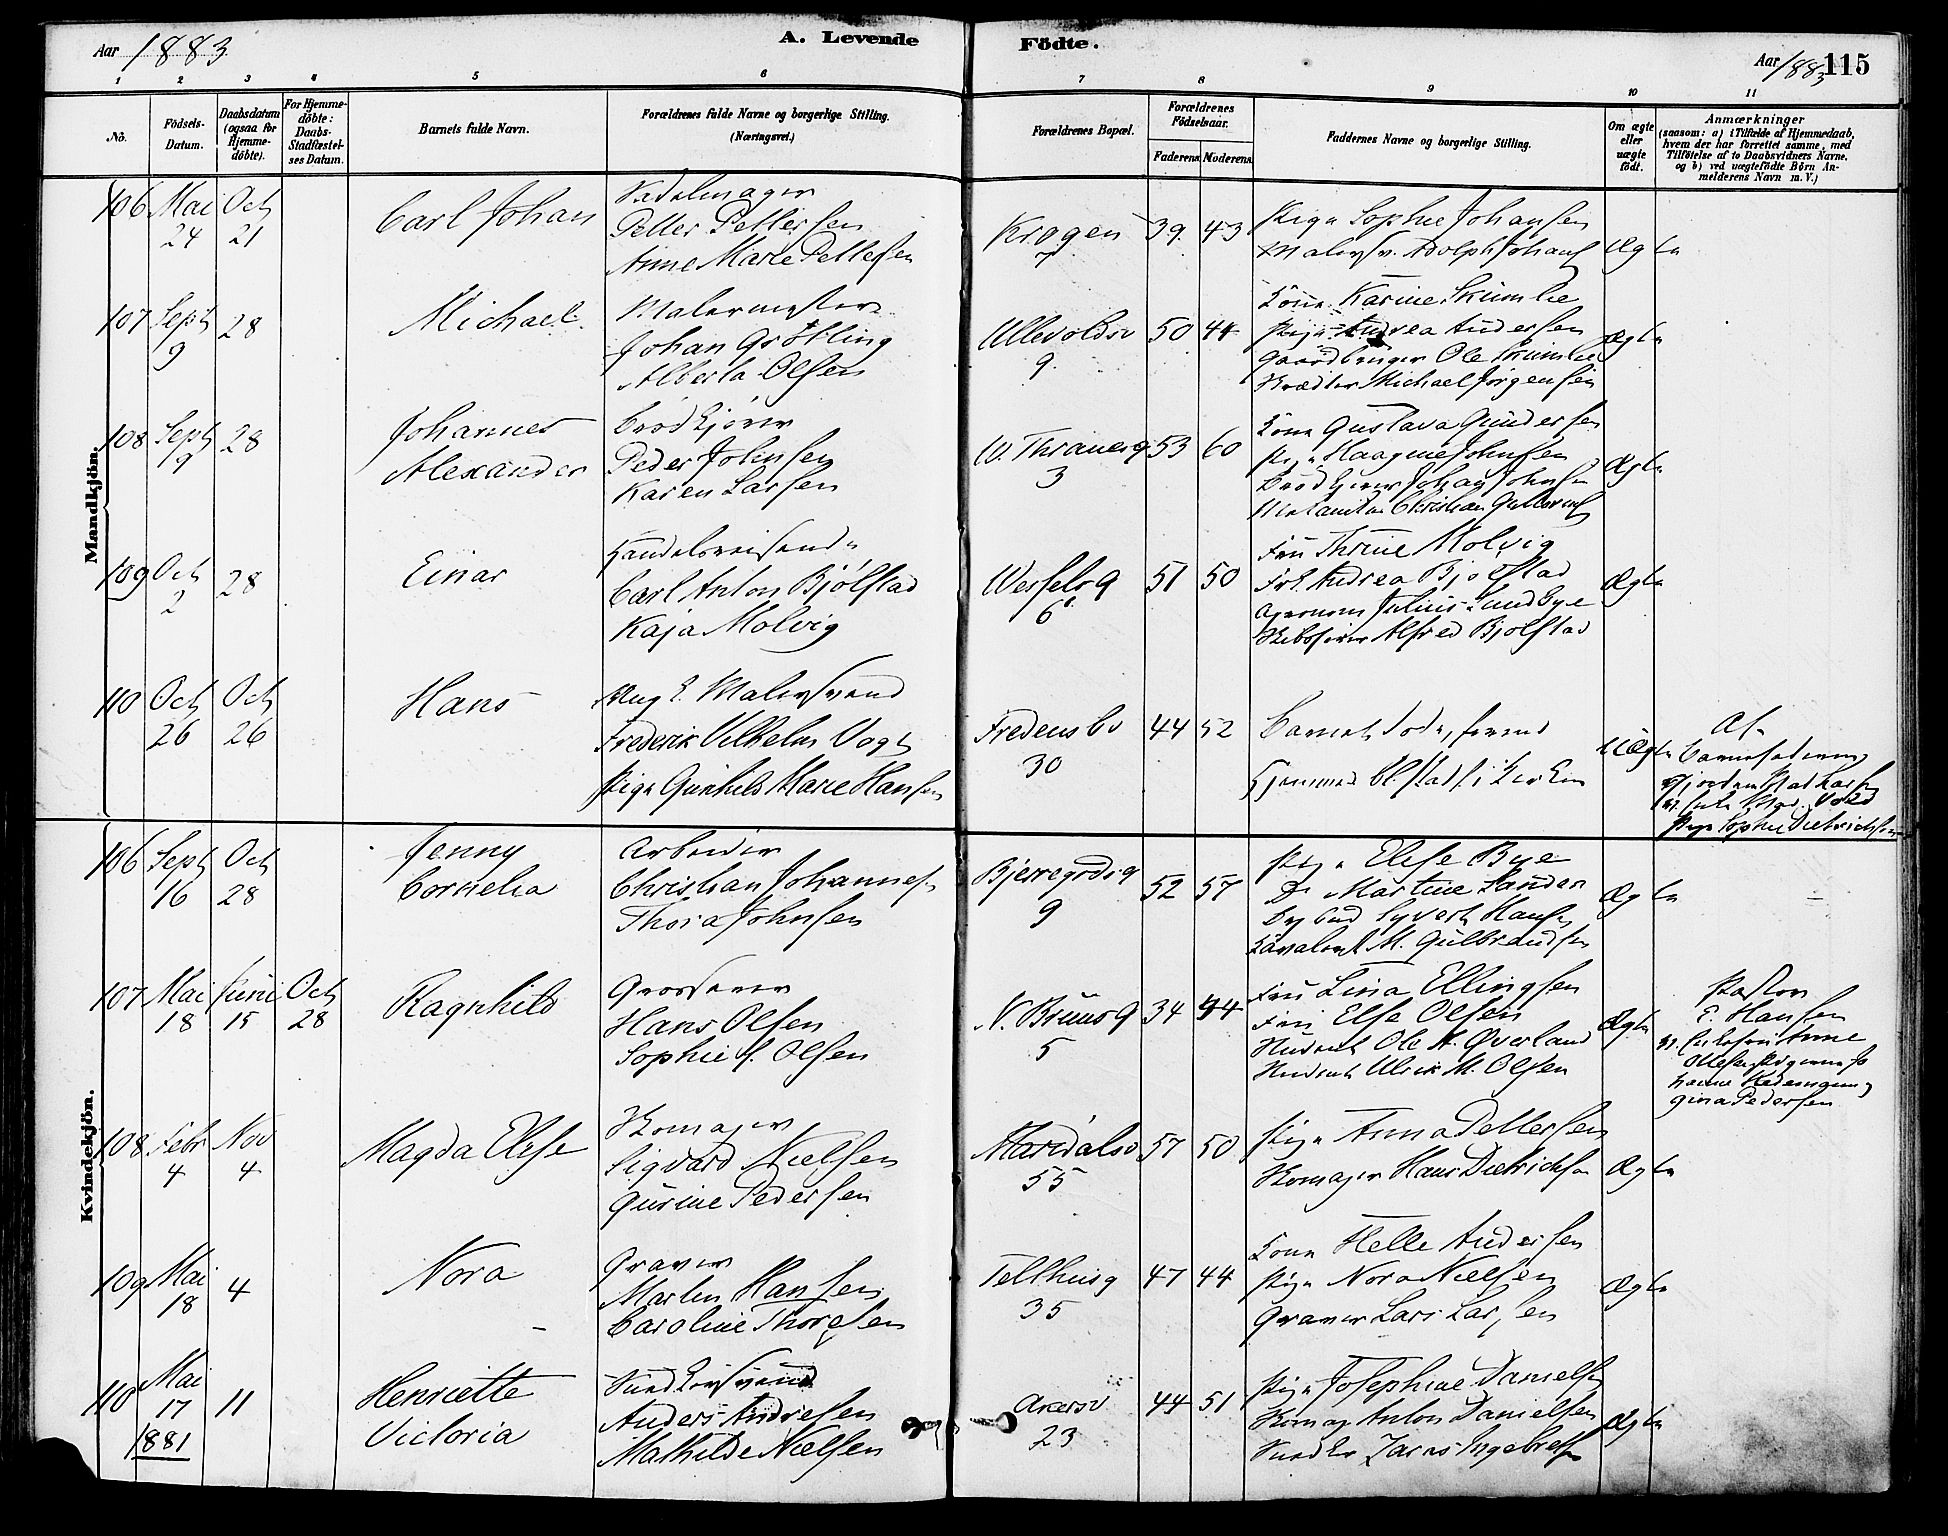 Aar 1883
A. Levende Födte.
Aar 1883 115
1 2 3 4 5 6 7 8 9 10 11
No.
Födsels-Datum.
Daabsdatum (ogsaa for Hjemme-döbte).
For Hjemme-döbte: Daabs-Stadfæstel-ses Datum.
Barnets fulde Navn.
Forældrenes fulde Navne og borgerlige Stilling. (Næringsvei.)
Forældrenes Bopæl.
Forældrenes Födselsaar.
Faderens. Moderens.
Faddernes Navne og borgerlige Stilling.
Om ægte eller uægte födt.
Anmærkninger
(saasom: a) i Tilfælde af Hjemmedaab,
hvem der har forrettet samme, med
Tilföielse af to Daabsvidners Navne.
og b) ved uægtefödte Börn An-
melderens Navn m. V.)
Mandkjön.
106 Mai 24 Oct 21
Carl Johan
Sadelmager
Petter Pettersen
Anne Marie Pettersen
Krogen 7
39. 43
Pige Sophie Johansen
Malersv. Adolph Johans
Ægte
107 Sept 9 28
Michael
Malermester
Johan Grötling
Alberta Olsen
Ullevoldsv 9.
50 44
Kone Karine Skumlie
Pige Andrea Andersen
Gaardbruger Ole Skumlie
Skrædder Michael Jörgensen
Ægte
108 Sept 9 28
Johannes
Alexander
Brödkjörer
Peder Johnsen
Karen Larsen
W. Thranesg 3
53 60
Kone Gustava Gundersen
Pige Haagine Johnsen
Brödkjörer Johan Johnse
Christian
Ægte
109 Oct 2 28
Einar
Handelsreisende
Carl Anton Bjölstad
Kaja Molvig
Wessels g 6
51 50
Fru Thrine Molvig
Frk. Andrea Bjolstad
Agronom Julius Lundbye
Skibsförer Alfred Bjolstad
Ægte
110 Oct 26 Oct 26
Hans
Ung k. Malersvend
Frederik Vilhelm Vogt
Pige Gunhild Marie Hansen
Fredensbv 30
44 52
Barnet döde, förend
Hjemmed. bl. stadf. i Kirken
UÆgte
Af
Barnefaderen
Pige Sophie Dietrichsen
Kvindekjön.
106 Sept 16 Oct 28
Jenny
Cornelia
Arbeider
Christian Johannes
Thora Johnsen
Bjerregrdsg 9
52 57
Pige Elise Bye
Do Martine Sanden
Bybud Syvert Hansen
M. Gulbrandsen
Ægte
107 Mai 18 Juni 15 Oct 28
Ragnhild
Grosserer
Hans Olsen
Sophie f. Olsen
N. Bruns g 5
34 44
Fru Lina Ellingsen
Fru Else Olsen
Student Ole A. Øverland
Student Ulrik M. Olsen
Ægte
Pastor
E. Hansen
gina Pedersen
108 Febr 4 Nov 4
Magda Elise
Skomager
Sigvard Nielsen
Gurine Pedersen
Maridalsv 55
57 50
Pige Anna Pettersen
Skomager Hans Dietrichse
Ægte
109 Mai 18 4
Nora
Graver
Martin Hansen
Caroline Thoresen
Telthusg 35
47 44
Kone Helle Andersen
Pige Nora Nielsen
Graver Lars Larsen
Ægte
110 Mai 17 1881 11
Henriette
Victoria
Snedkersvend
Anders Andresen
Mathilde Nielsen
Akersv 23
44 51
Pige Josephine Danielse
Skomag Anton Danielsen
Snedker Ingebretse
Ægte